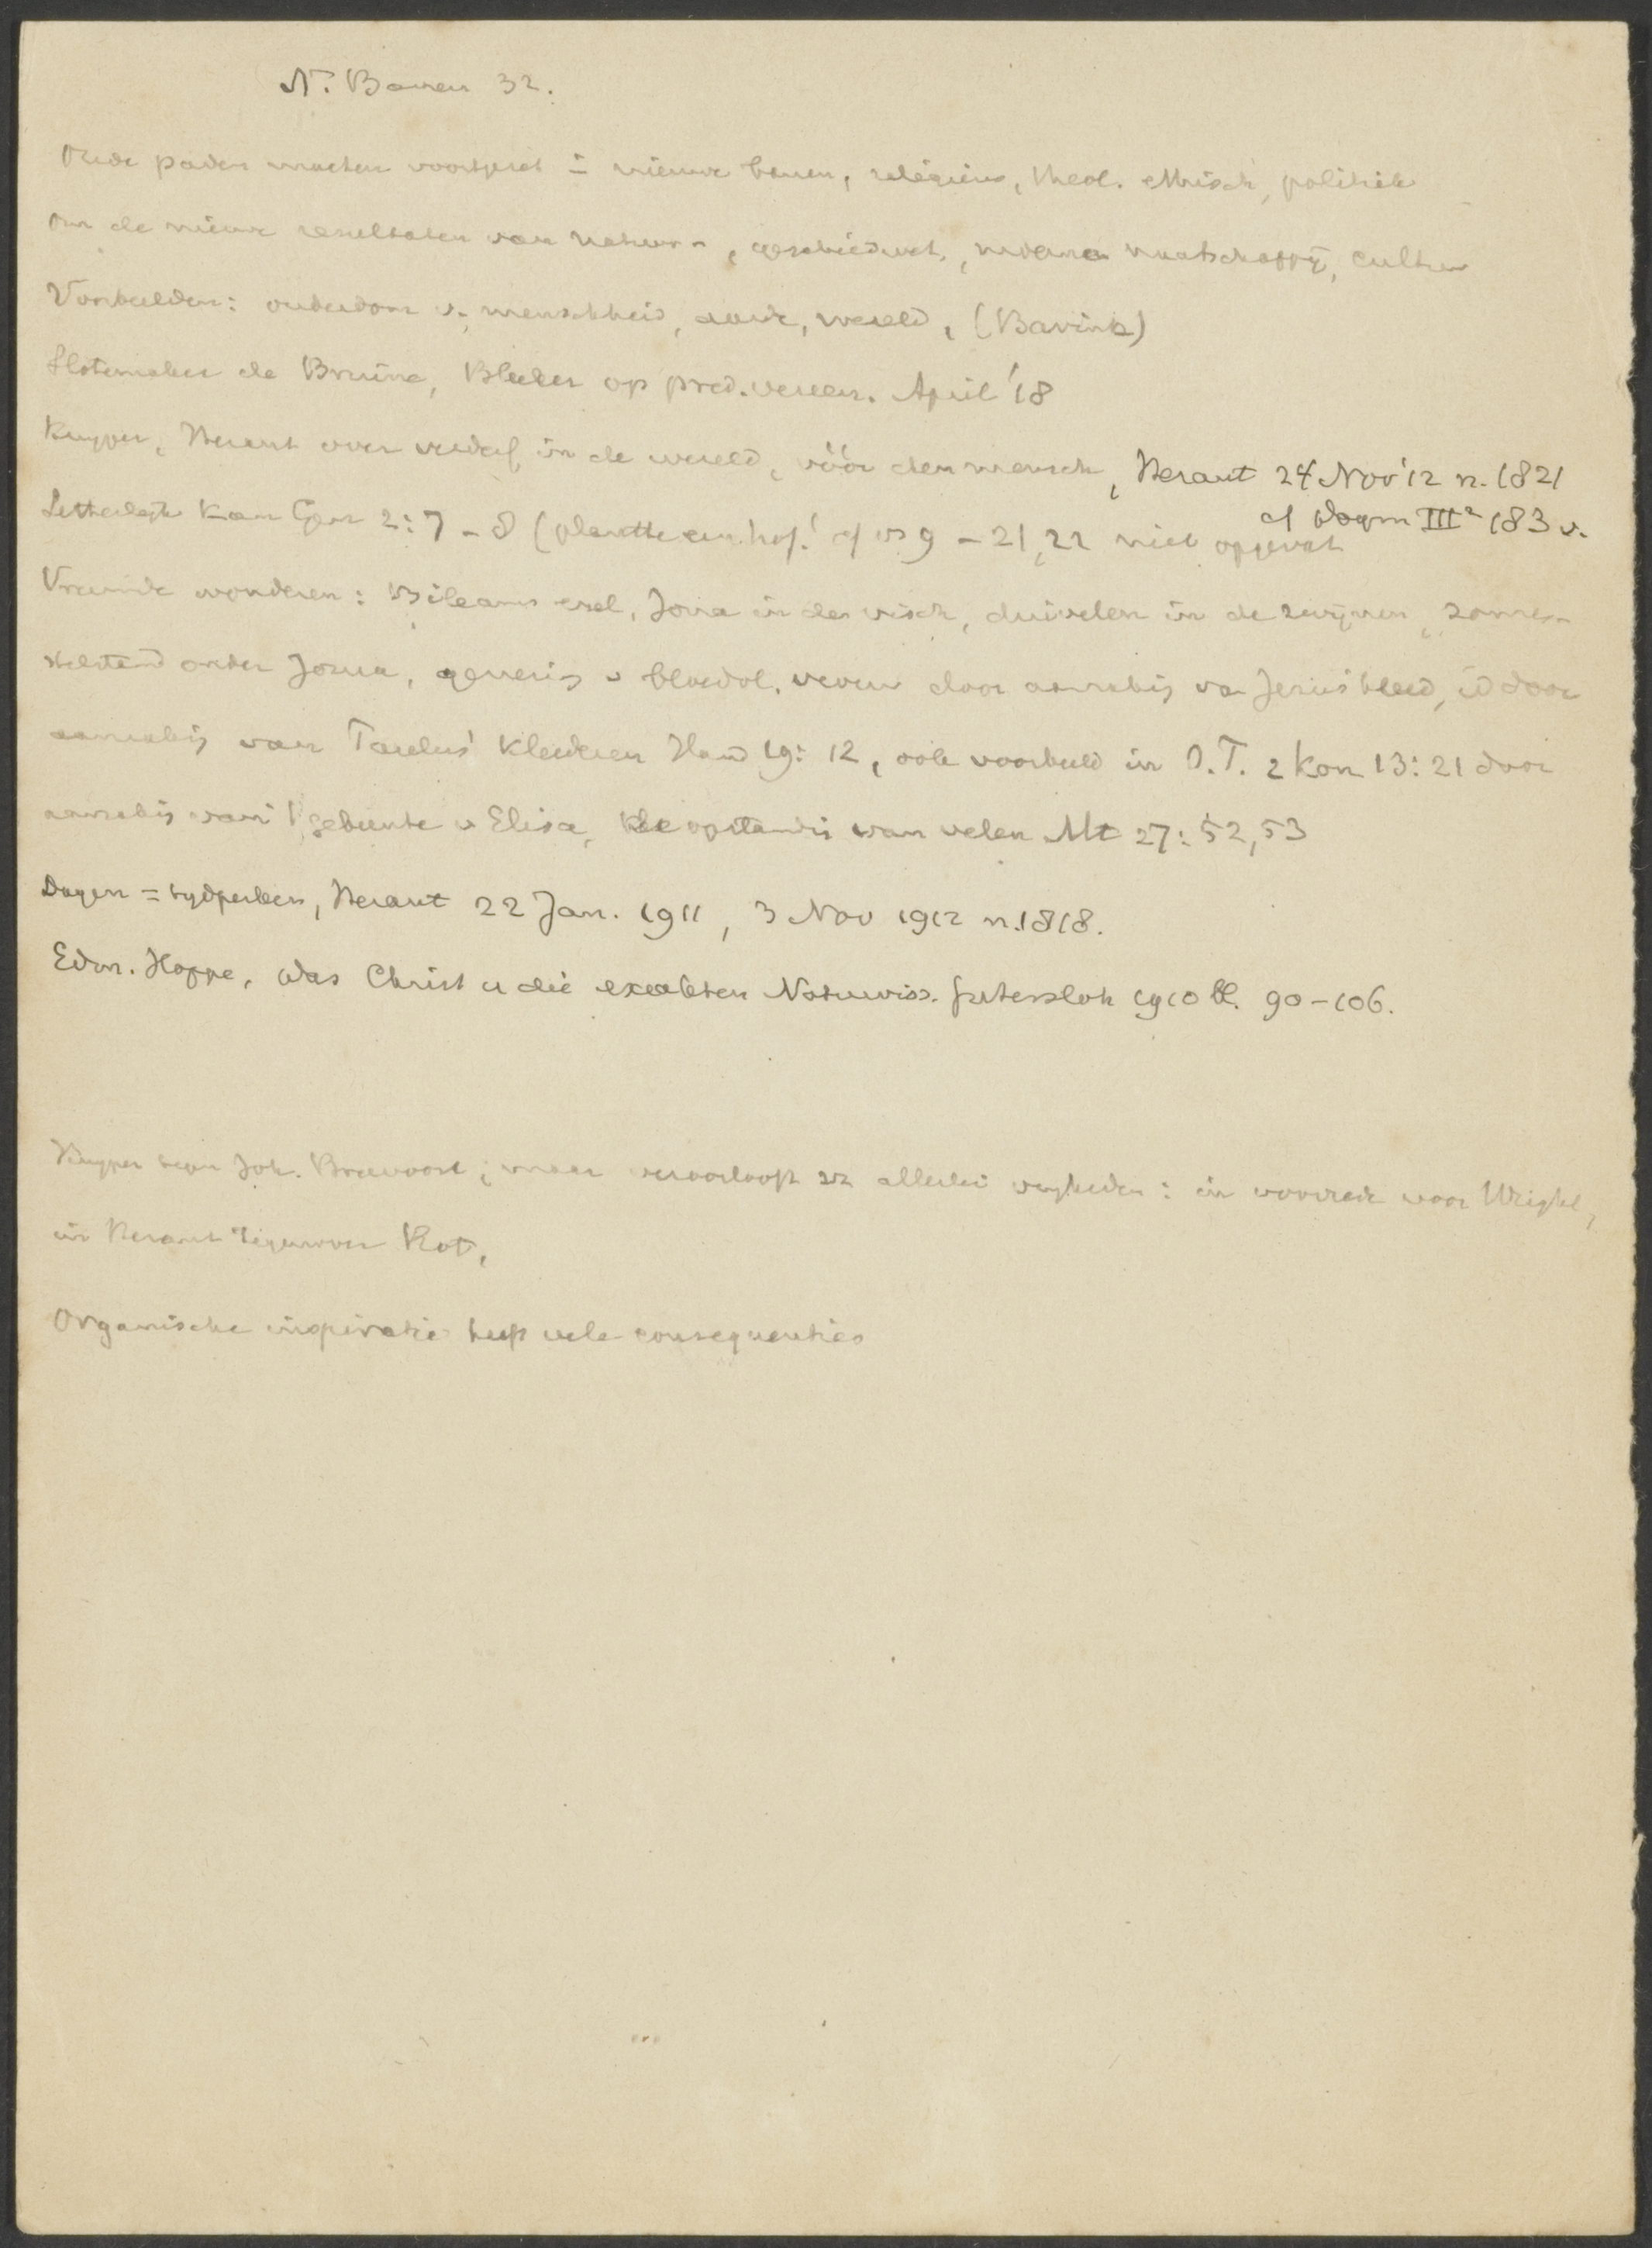 N. Banen 32.
Oude paden moeten voortgezet in nieuwe banen, religieus, theol. ethisch, politiek
Om de nieuwe resultaten van natuur-, geschiedwet, moderne maatschappij, cultuur
Voorbeelden: ouderdom v. menschheid, aarde, wereld, (Bavink)
Slotemaker de Bruine, Bleeker op pred. vereen. April '18
Kuyper, Heraut over verderf in de wereld, vóór den mensch, Heraut 24 Nov '12 n. 1821
cf Dogm III² 183 v.
Letterlijk kan Gen 2:7-8 (plantte een hof! cf vs 9 - 21, 22 niet opgevat
Vreemde wonderen: Bileams ezel, Jona in den visch, duivelen in de zwijnen, zonne-
stilstand onder Jozua, genezing v bloedvl. vrouw door aanraking van Jezus' kleed, id door
aanraking van Paulus' kleederen Hand 19:12, ook voorbeeld in O.T. 2 Kon 13:21 door
aanraking van 't gebeente v Elisa, de opstanding van velen Mt 27:52,53
Dagen = tydperken, Heraut 22 Jan. 1911, 3 Nov 1912 n. 1818.
Edm. Hoppe, Das Christ u die exakten Naturwiss. Gutersloh 1910 bl. 90-106.
Kuyper tegen Joh. Breevoort; maar veroorlooft zich allerlei vryheden: in voorrede voor Wright,
in Heraut tegenover Kot,
Organische inspiratie heeft vele consequenties